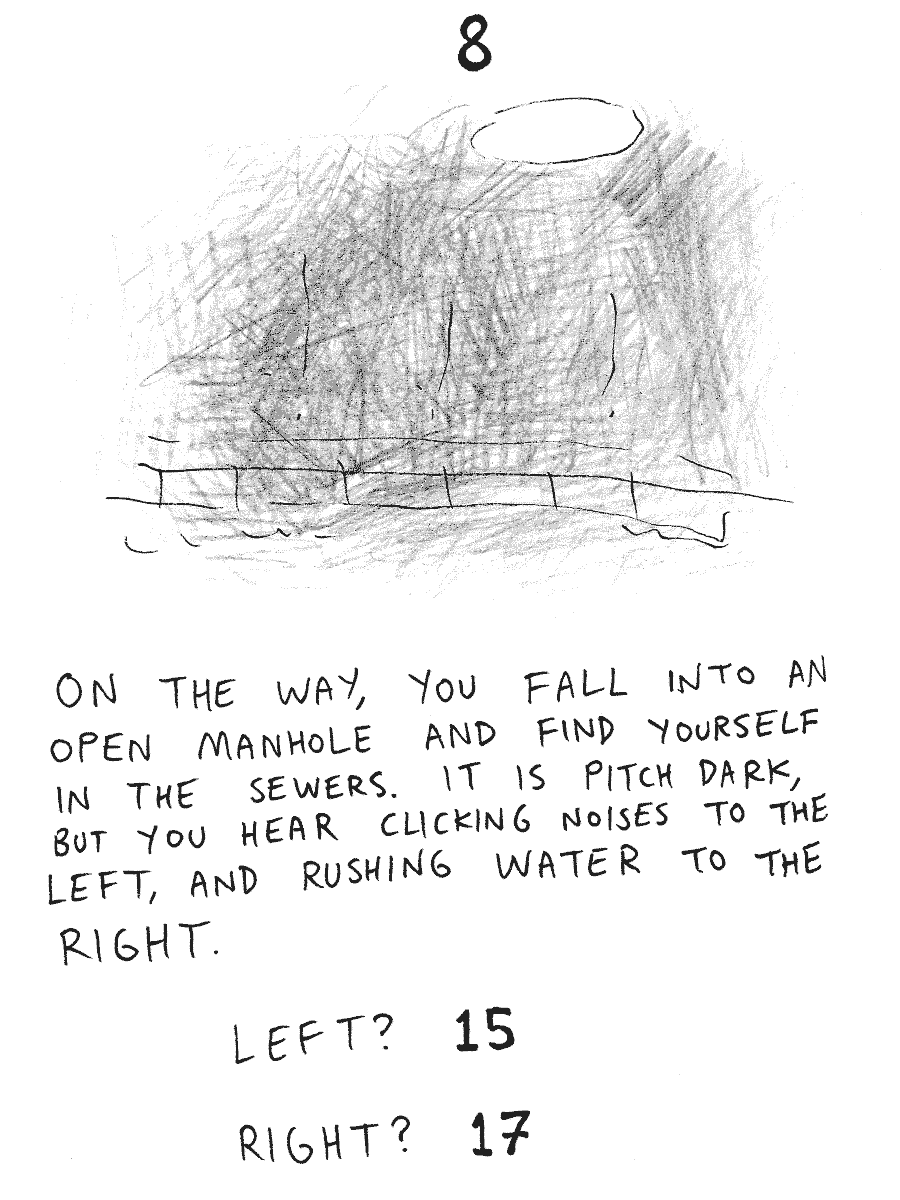 8
ON THE WAY, YOU FALL INTO AN
OPEN MANHOLE AND FIND YOURSELF
IN THE SEWERS. IT IS PITCH DARK,
BUT YOU HEAR CLICKING NOISES TO THE
LEFT, AND RUSHING WATER TO THE
RIGHT.
LEFT? 15
RIGHT? 17